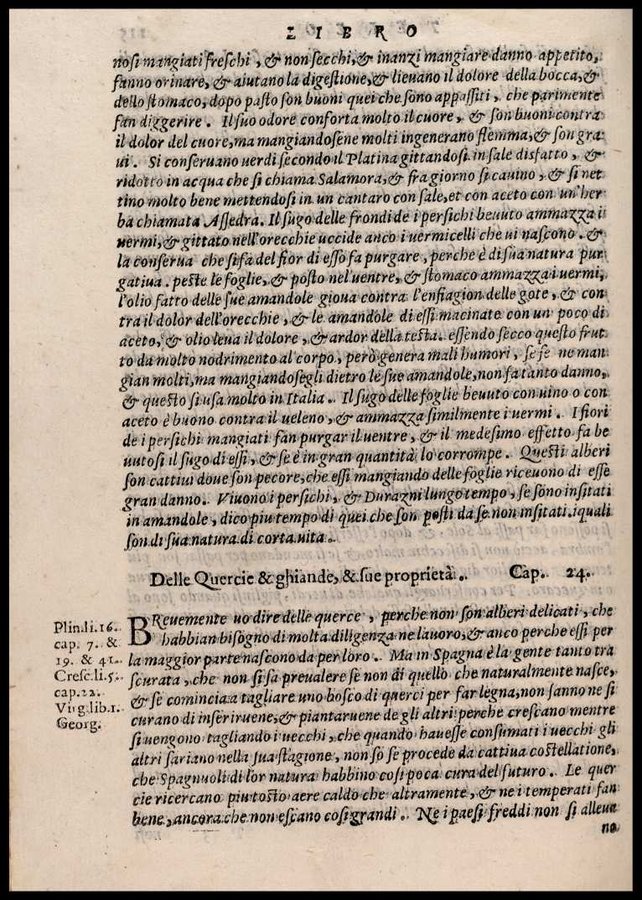 LIBRO
nosi mangiati freschi, & non secchi, & inanzi mangiare danno appetito,
fanno orinare, & aiutano la digestione, & lieuano il dolore della bocca, &
dello stomaco, dopo pasto son buoni quei che sono appassiti, che parimente
fan diggerire. Il suo odore conforta molto il cuore, & son buoni contra
il dolor del cuore, ma mangiandosene molti ingenerano flemma, & son gra
ui. Si conseruano uerdi secondo il Platina gittandosi in sale disfatto, &
ridotto in acqua che si chiama Salamora, & fra giorno si cauino, & si net
tino molto bene mettendosi in un cantaro con sale, et con aceto con un'her
ba chiamata Assedra. Il sugo delle frondi de i persichi beuuto ammazza ii
uermi, & gittato nell'orecchie uccide anco i uermicelli che ui nascono. &
la conserua che si fa del fior di esso fa purgare, perche è di sua natura pur
gatiua. peste le foglie, & posto nel uentre, & stomaco ammazza i uermi,
l'olio fatto delle sue amandole gioua contra l'enfiagion delle gote, & con
tra il dolor dell'orecchie, & le amandole di essi macinate con un poco di
aceto, & olio leua il dolore, & ardor della testa. essendo secco questo frut
to da molto nodrimento al corpo, però genera mali humori, se se ne man
gian molti, ma mangiandosegli dietro le sue amandole, non fa tanto danno,
& questo si usa molto in Italia. Il sugo delle foglie beuuto con uino o con
aceto è buono contra il ueleno, & ammazza similmente i uermi. I fiori
de i persichi mangiati fan purgar il uentre, & il medesimo effetto fa be
uutosi il sugo di essi, & se è in gran quantità lo corrompe. Questi alberi
son cattiui doue son pecore, che essi mangiando delle foglie riceuono di esse
gran danno. Viuono i persichi, & Durazni lungo tempo, se sono insitati
in amandole, dico piu tempo di quei che son posti da se non insitati. iquali
son di sua natura di corta uita.
Delle Quercie & ghiande, & sue proprietà. Cap. 24.
Plin.li.16.
cap. 7. &
19. & 41.
Cresc.li.5.
cap.22.
Virg.lib.1.
Georg.
BReuemente uo dire delle querce, perche non son alberi delicati, che
habbian bisogno di molta diligenza ne lauoro, & anco perche essi per
la maggior parte nascono da per loro. Ma in Spagna è la gente tanto tra
scurata, che non si sa preualere se non di quello che naturalmente nasce,
& se comincia a tagliare uno bosco di querci per far legna, non sanno ne si
curano di inseriruene, & piantaruene de gli altri perche crescano mentre
si uengono tagliando i uecchi, che quando hauesse consumati i uecchi gli
altri sariano nella sua stagione, non so se procede da cattiua costellatione,
che Spagnuoli di lor natura habbino cosi poca cura del futuro. Le quer
cie ricercano piu tosto aere caldo che altramente, & ne i temperati fan
bene, ancora che non escano cosi grandi. Ne i paesi freddi non si alleua
no